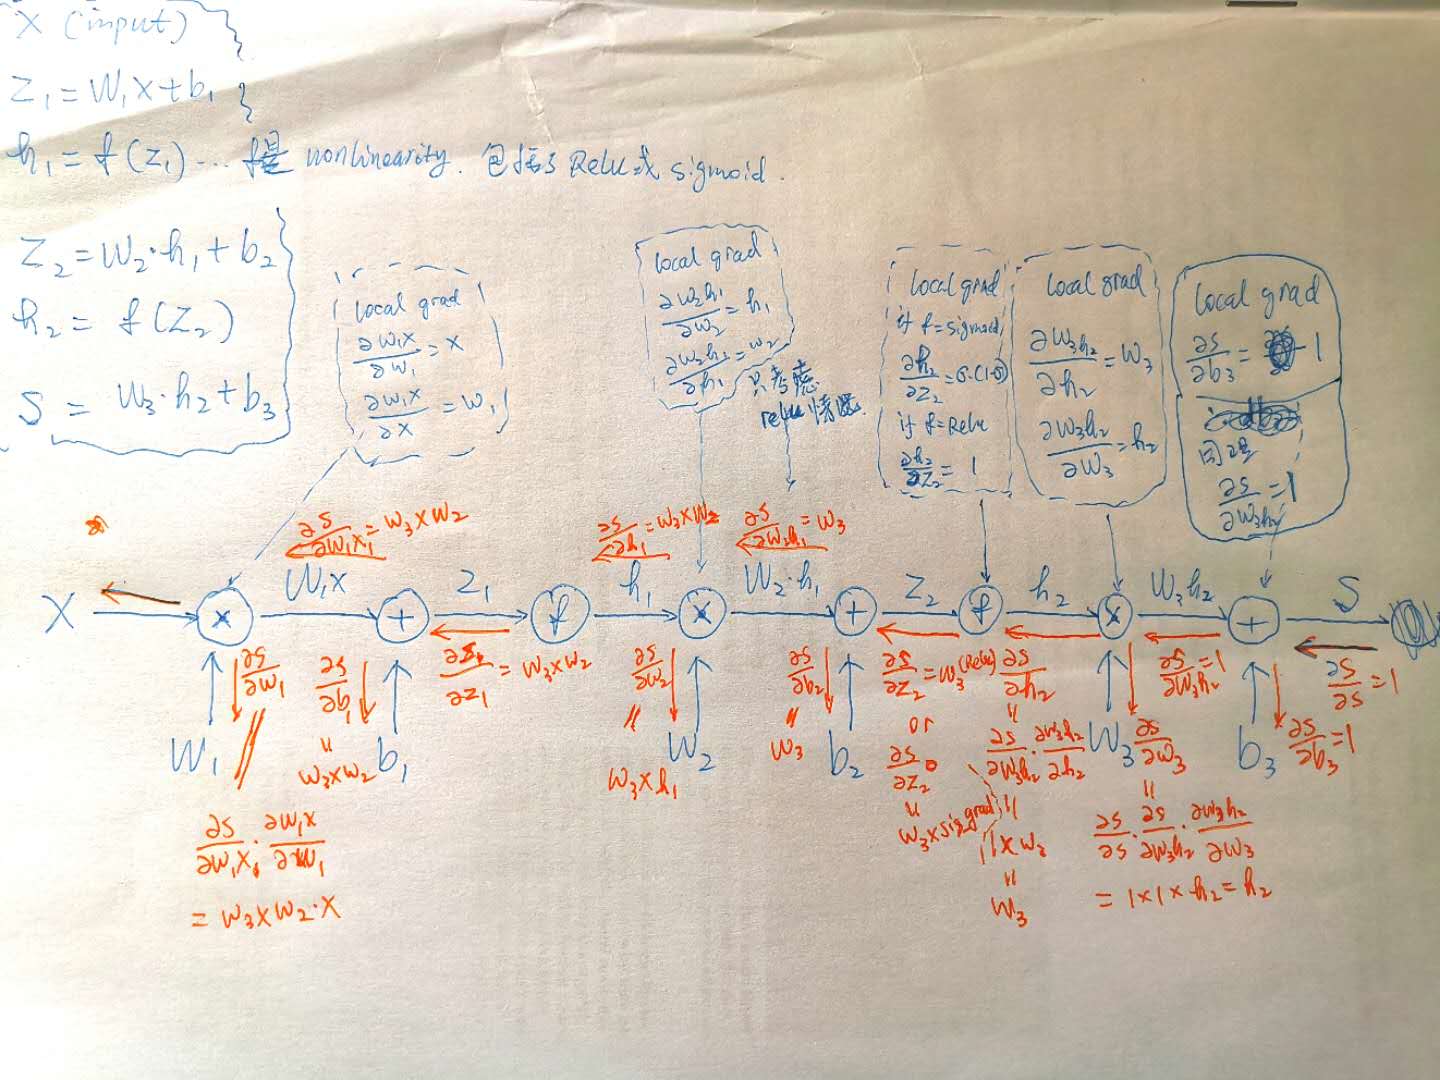 X (input)
Z₁ = W₁X + b₁
h₁ = f(z₁) ... f是 nonlinearity. 包括了 Relu 或 sigmoid.
Z₂ = W₂·h₁ + b₂
h₂ = f(Z₂)
S = W₃·h₂ + b₃
local grad
∂W₁X/∂W₁ = X
∂W₁X/∂X = W₁
local grad
∂W₂h₁/∂W₂ = h₁
∂W₂h₁/∂h₁ = W₂
只考虑
relu 情况
local grad
if f=sigmoid
∂h₂/∂Z₂ = σ·(1-σ)
if f=Relu
∂h₂/∂Z₂ = 1
local grad
∂W₃h₂/∂h₂ = W₃
∂W₃h₂/∂W₃ = h₂
local grad
∂S/∂b₃ = 1
同理
∂S/∂W₃h₂ = 1
∂S/∂W₁X₁ = W₃×W₂
∂S/∂h₁ = W₃×W₂
∂S/∂W₂h₁ = W₃
X × W₁X + Z₁ f h₁ × W₂·h₁ + Z₂ f h₂ × W₃h₂ + S
∂S/∂W₁
∂S/∂b₁
=
W₃×W₂
∂S/∂Z₁ = W₃×W₂
∂S/∂W₂
=
W₃×h₁
∂S/∂b₂
=
W₃
∂S/∂Z₂ = W₃ (Relu)
or
∂S/∂Z₂
=
W₃×sig grad
∂S/∂h₂
=
∂S/∂W₃h₂ · ∂W₃h₂/∂h₂
=
1×W₃
=
W₃
∂S/∂W₃h₂ = 1
∂S/∂S = 1
∂S/∂b₃ = 1
W₁ b₁ W₂ b₂ W₃ b₃
∂S/∂W₃
=
∂S/∂S · ∂S/∂W₃h₂ · ∂W₃h₂/∂W₃
= 1×1×h₂ = h₂
∂S/∂W₁X₁ · ∂W₁X/∂W₁
= W₃×W₂·X